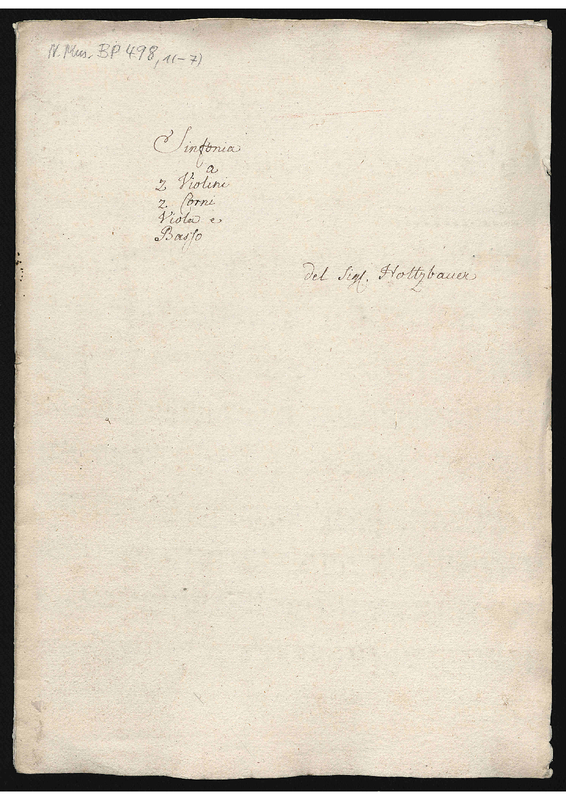 N. Mus. BP 498, 1(-7)
Sinfonia
a
2 Violini
2. Corni
Viola e
Basso
del Sigl. Holtzbauer